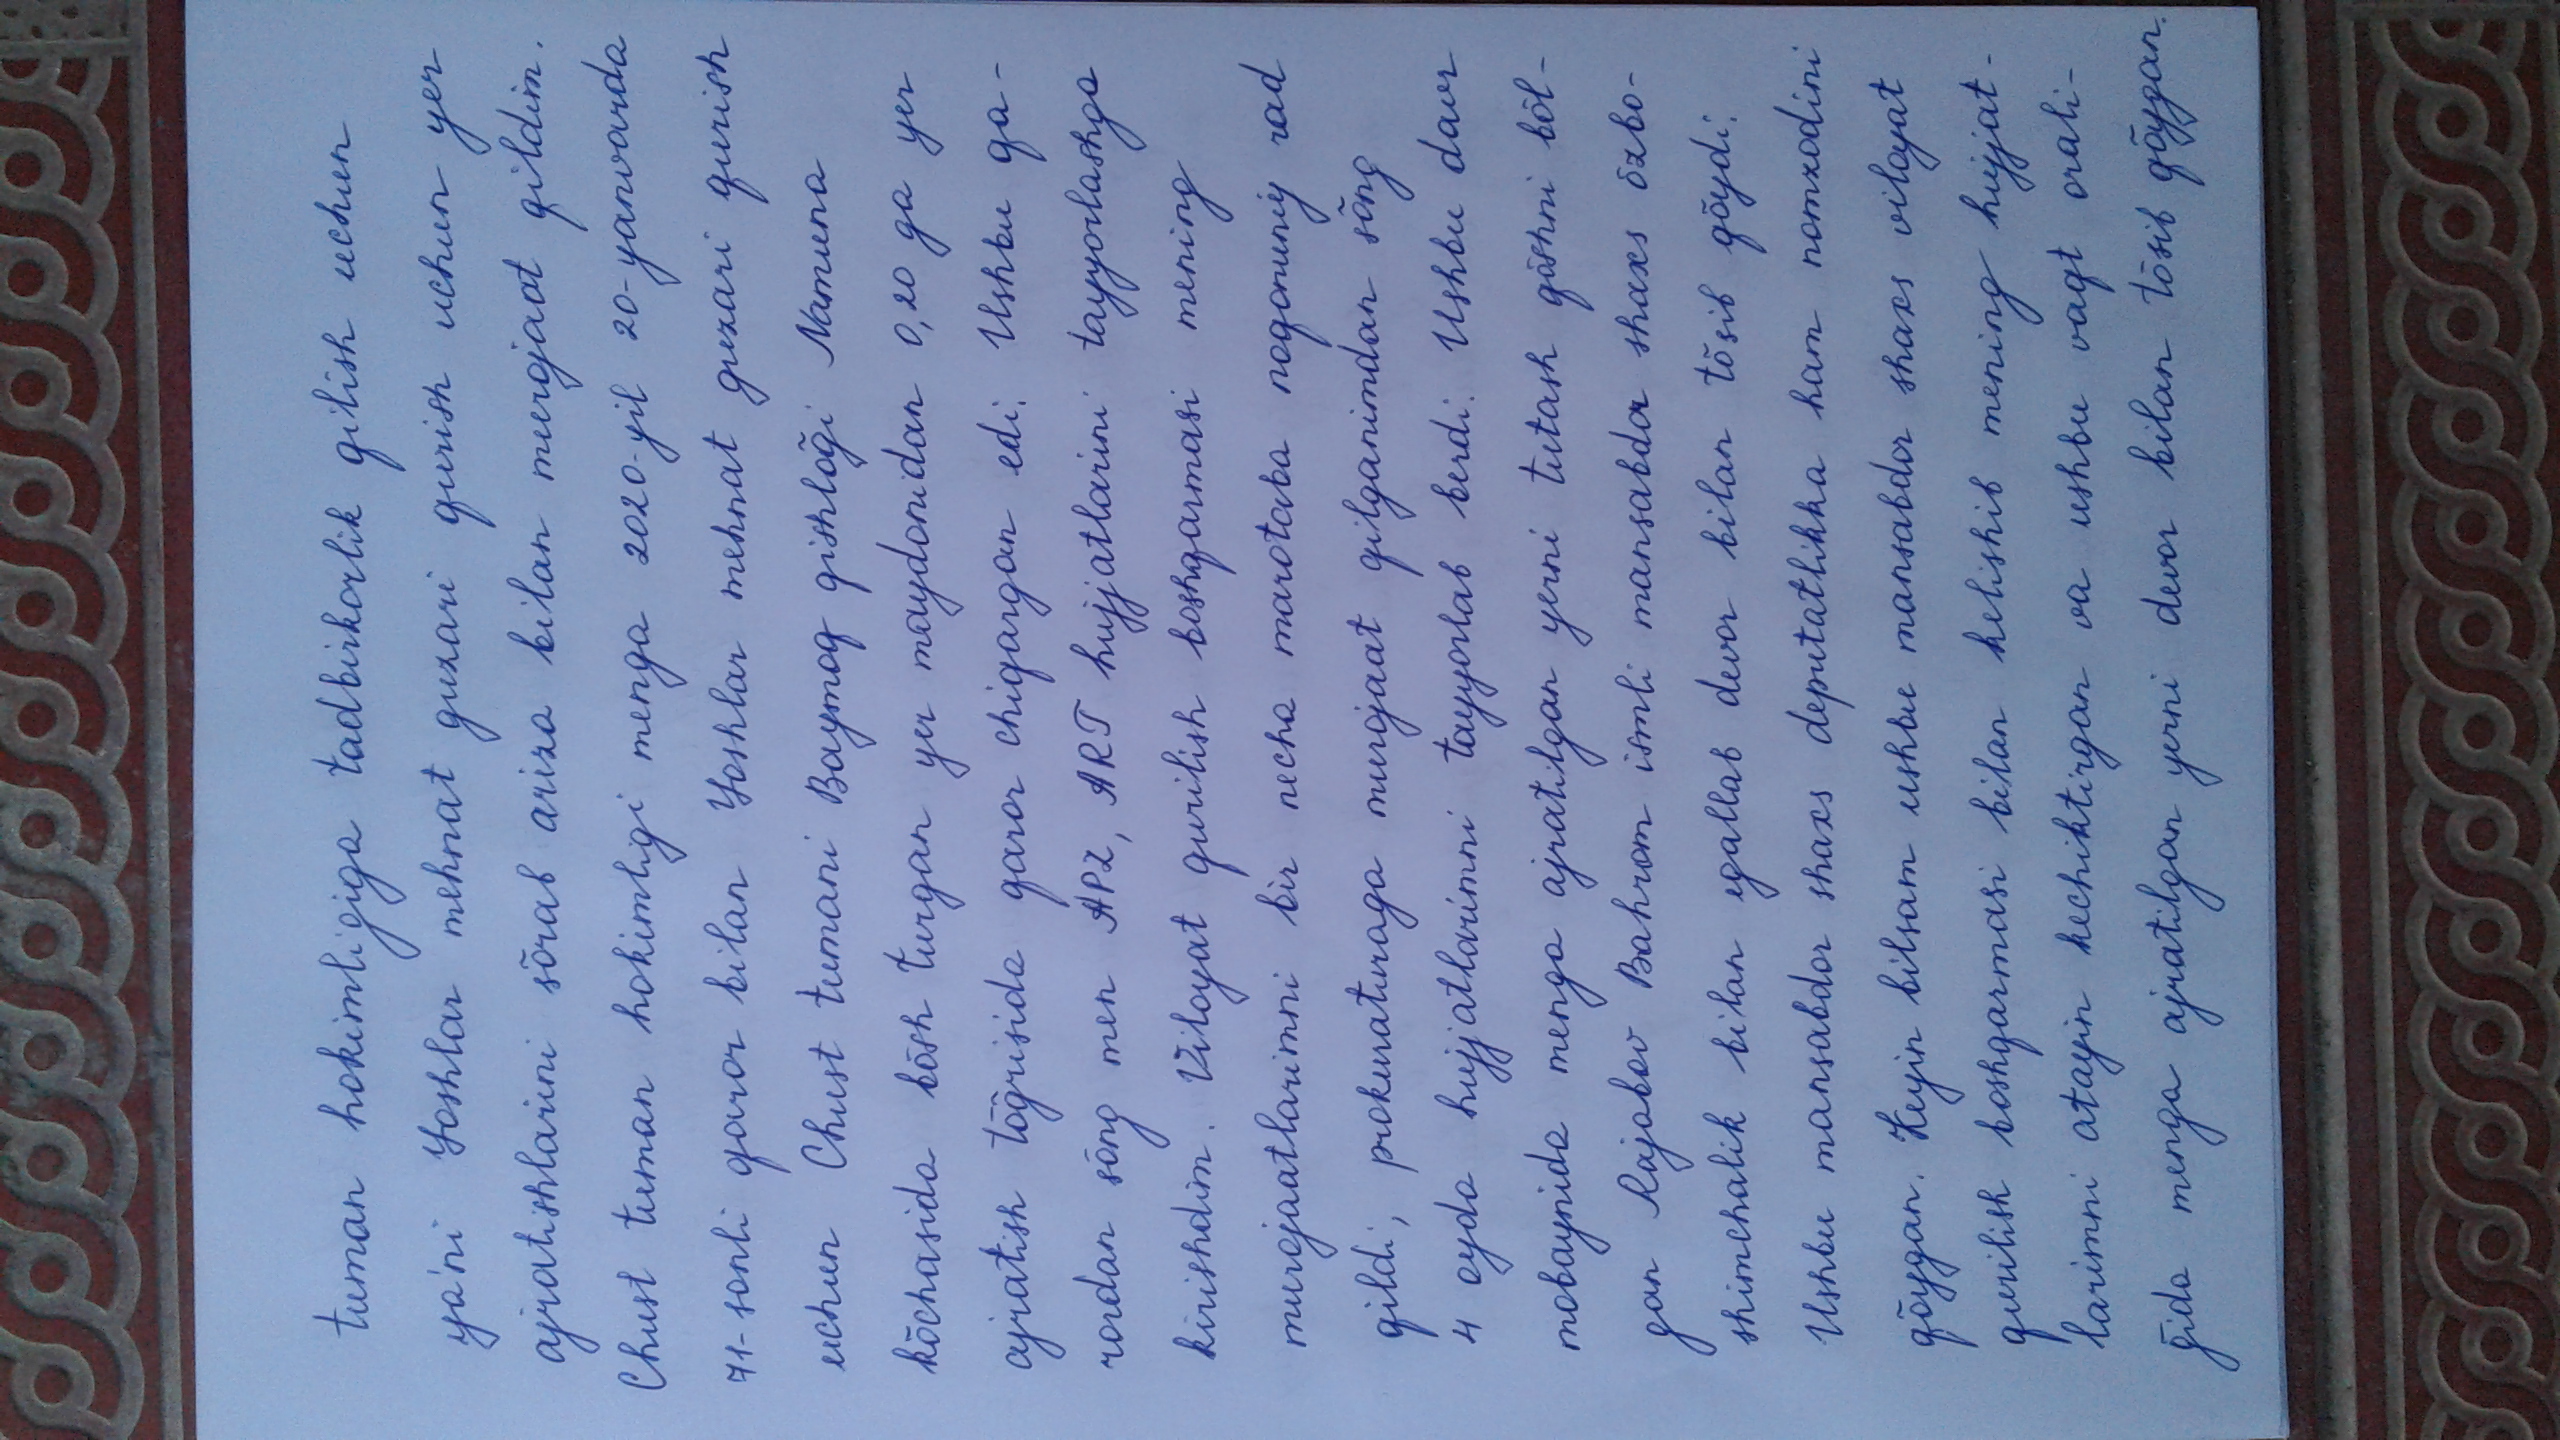 tuman hokimligiga tadbirkorlik qilish uchun
ya'ni Yoshlar mehnat guzari qurish uchun yer
ajratishlarini sõrab ariza bilan murojaat qildim.
Chust tuman hokimligi menga 2020-yil 20-yanvarda
71-sonli qaror bilan Yoshlar mehnat guzari qurish
uchun Chust tumani Baymoq qishlog̃i Namuna
kõchasida bõsh turgan yer maydonidan 0,20 ga yer
ajratish tõg̃risida qaror chiqargan edi. Ushbu qa-
rordan sõng men APZ, ART hujjatlarini tayyorlashga
kirishdim. Viloyat qurilish boshqarmasi mening
murojaatlarimni bir necha marotaba noqonuniy rad
qildi, prokuraturaga murojaat qilganimdan sõng
4 oyda hujjatlarimni tayyorlab berdi. Ushbu davr
mobaynida menga ajratilgan yerni tutash qõshni bõl-
gan Rajabov Bahrom ismli mansabdor shaxs õzbo-
shimchalik bilan egallab devor bilan tõsib qõydi.
Ushbu mansabdor shaxs deputatlikka ham nomzodini
qõygan. Keyin bilsam ushbu mansabdor shaxs viloyat
qurilish boshqarmasi bilan kelishib mening hujjat-
larimni atayin kechiktirgan va ushbu vaqt orali-
g̃ida menga ajratilgan yerni devor bilan tõsib qõygan.